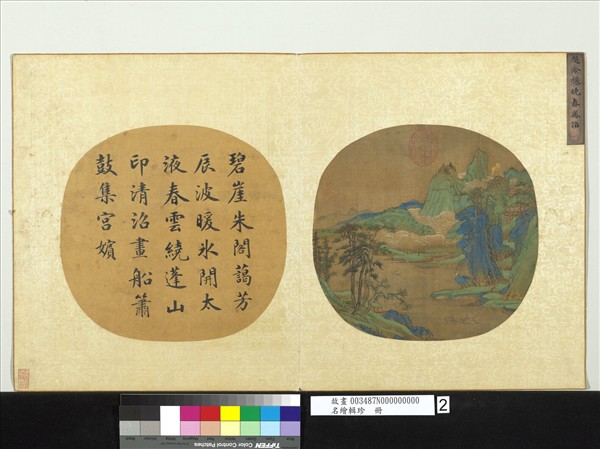 碧崖朱閣藹芳
辰波暖氷開太
液春雲繞蓬山
印清沼畫船簫
鼓集宮嬪
故畫 003487N000000000
名繪輯珍 冊
2
TIFFEN Color Control Patches